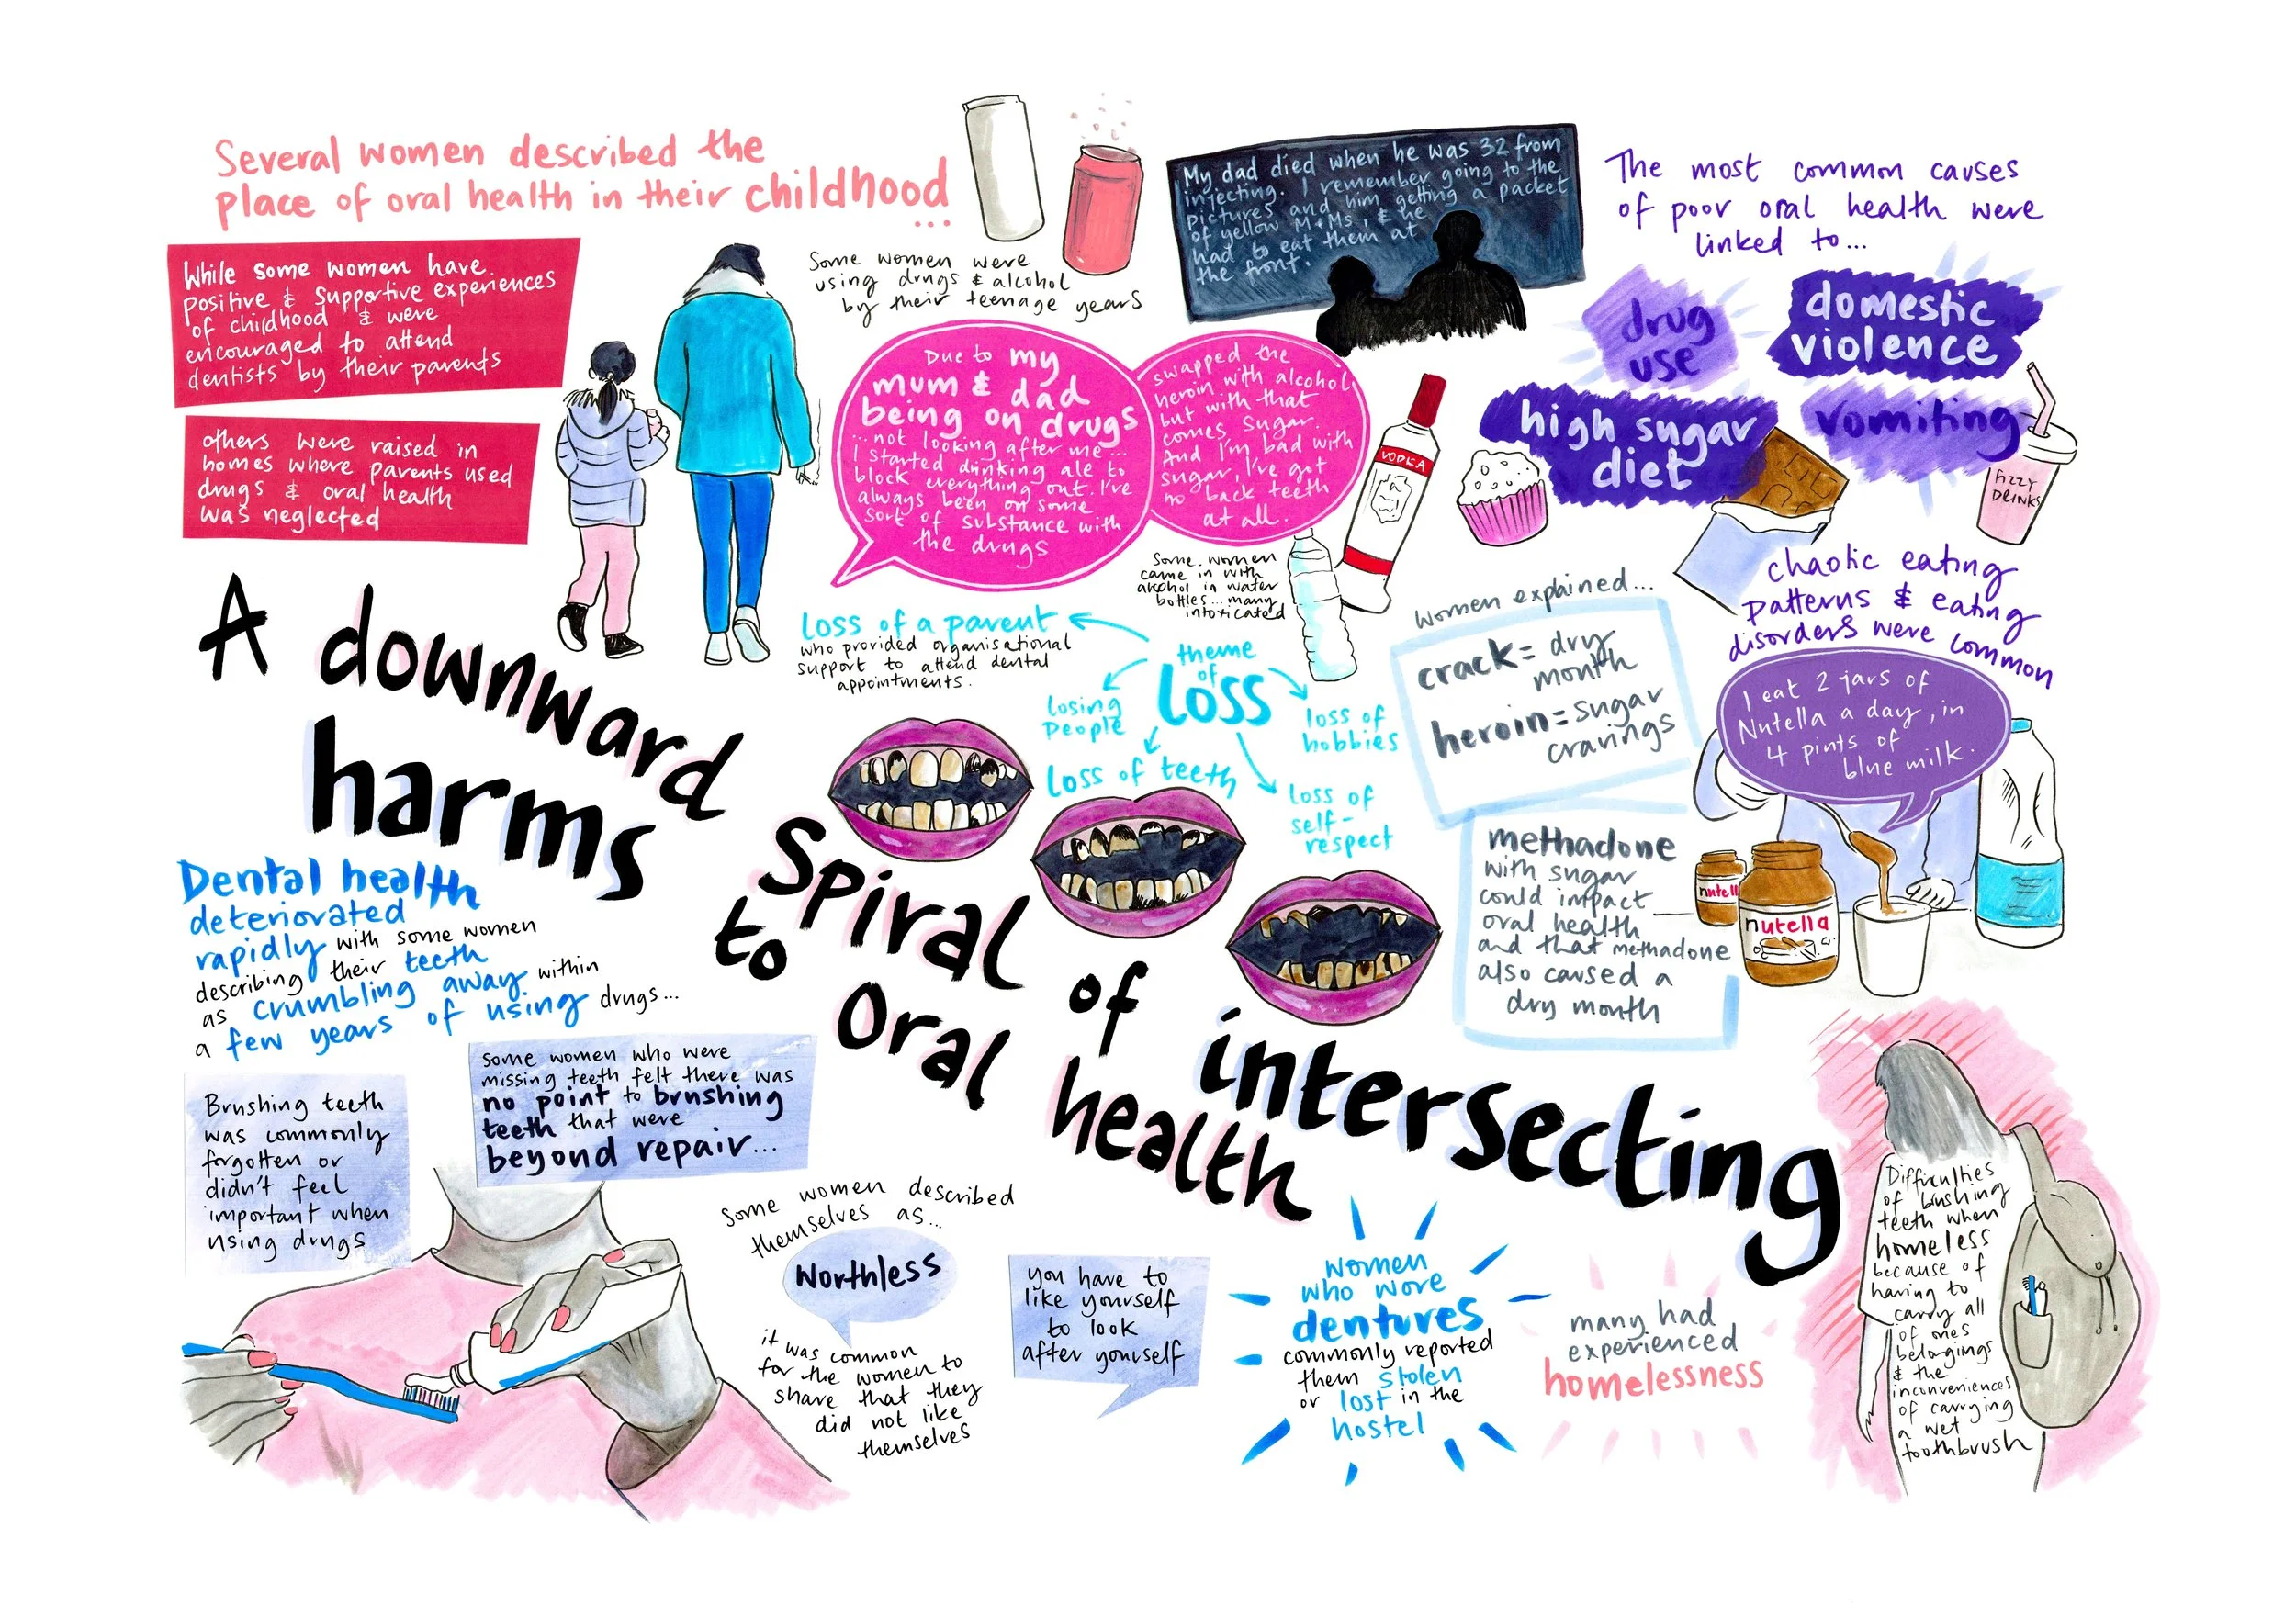 Several women described the
place of oral health in their childhood
...
While some women have
positive & supportive experiences
of childhood & were
encouraged to attend
dentists by their parents
others were raised in
homes where parents used
drugs & oral health
was neglected
Some women were
using drugs & alcohol
by their teenage years
My dad died when he was 32 from
injecting. I remember going to the
pictures and him getting a packet
of yellow M+Ms, & he
had to eat them at
the front.
Due to my
mum & dad
being on drugs
...not looking after me...
I started drinking ale to
block everything out. I've
always been on some
sort of substance with
the drugs
swapped the
heroin with alcohol
but with that
comes sugar.
And I'm bad with
sugar, I've got
no back teeth
at all.
VODKA
Some women
came in with
alcohol in water
bottles... many
intoxicated
The most common causes
of poor oral health were
linked to...
drug
use
domestic
violence
high sugar
diet
vomiting
fizzy
DRINKS
chaotic eating
patterns & eating
disorders were common
I eat 2 jars of
Nutella a day, in
4 pints of
blue milk.
nutell
nutella
Women explained...
crack = dry
month
heroin = sugar
cravings
methadone
with sugar
could impact
oral health
and that methadone
also caused a
dry month
theme
of
loss
loss of a parent
who provided organisational
support to attend dental
appointments.
losing
people
loss of teeth
loss of
hobbies
loss of
self-
respect
A downward spiral of intersecting
harms to oral health
Dental health
deteriorated
rapidly with some women
describing their teeth
as crumbling away within
a few years of using drugs...
Brushing teeth
was commonly
forgotten or
didn't feel
important when
using drugs
some women who were
missing teeth felt there was
no point to brushing
teeth that were
beyond repair...
Some women described
themselves as...
Worthless
it was common
for the women to
share that they
did not like
themselves
you have to
like yourself
to look
after yourself
women
who wore
dentures
commonly reported
them stolen
or lost in the
hostel
many had
experienced
homelessness
Difficulties
of brushing
teeth when
homeless
because of
having to
carry all
of ones
belongings
& the
inconveniences
of carrying
a wet
toothbrush